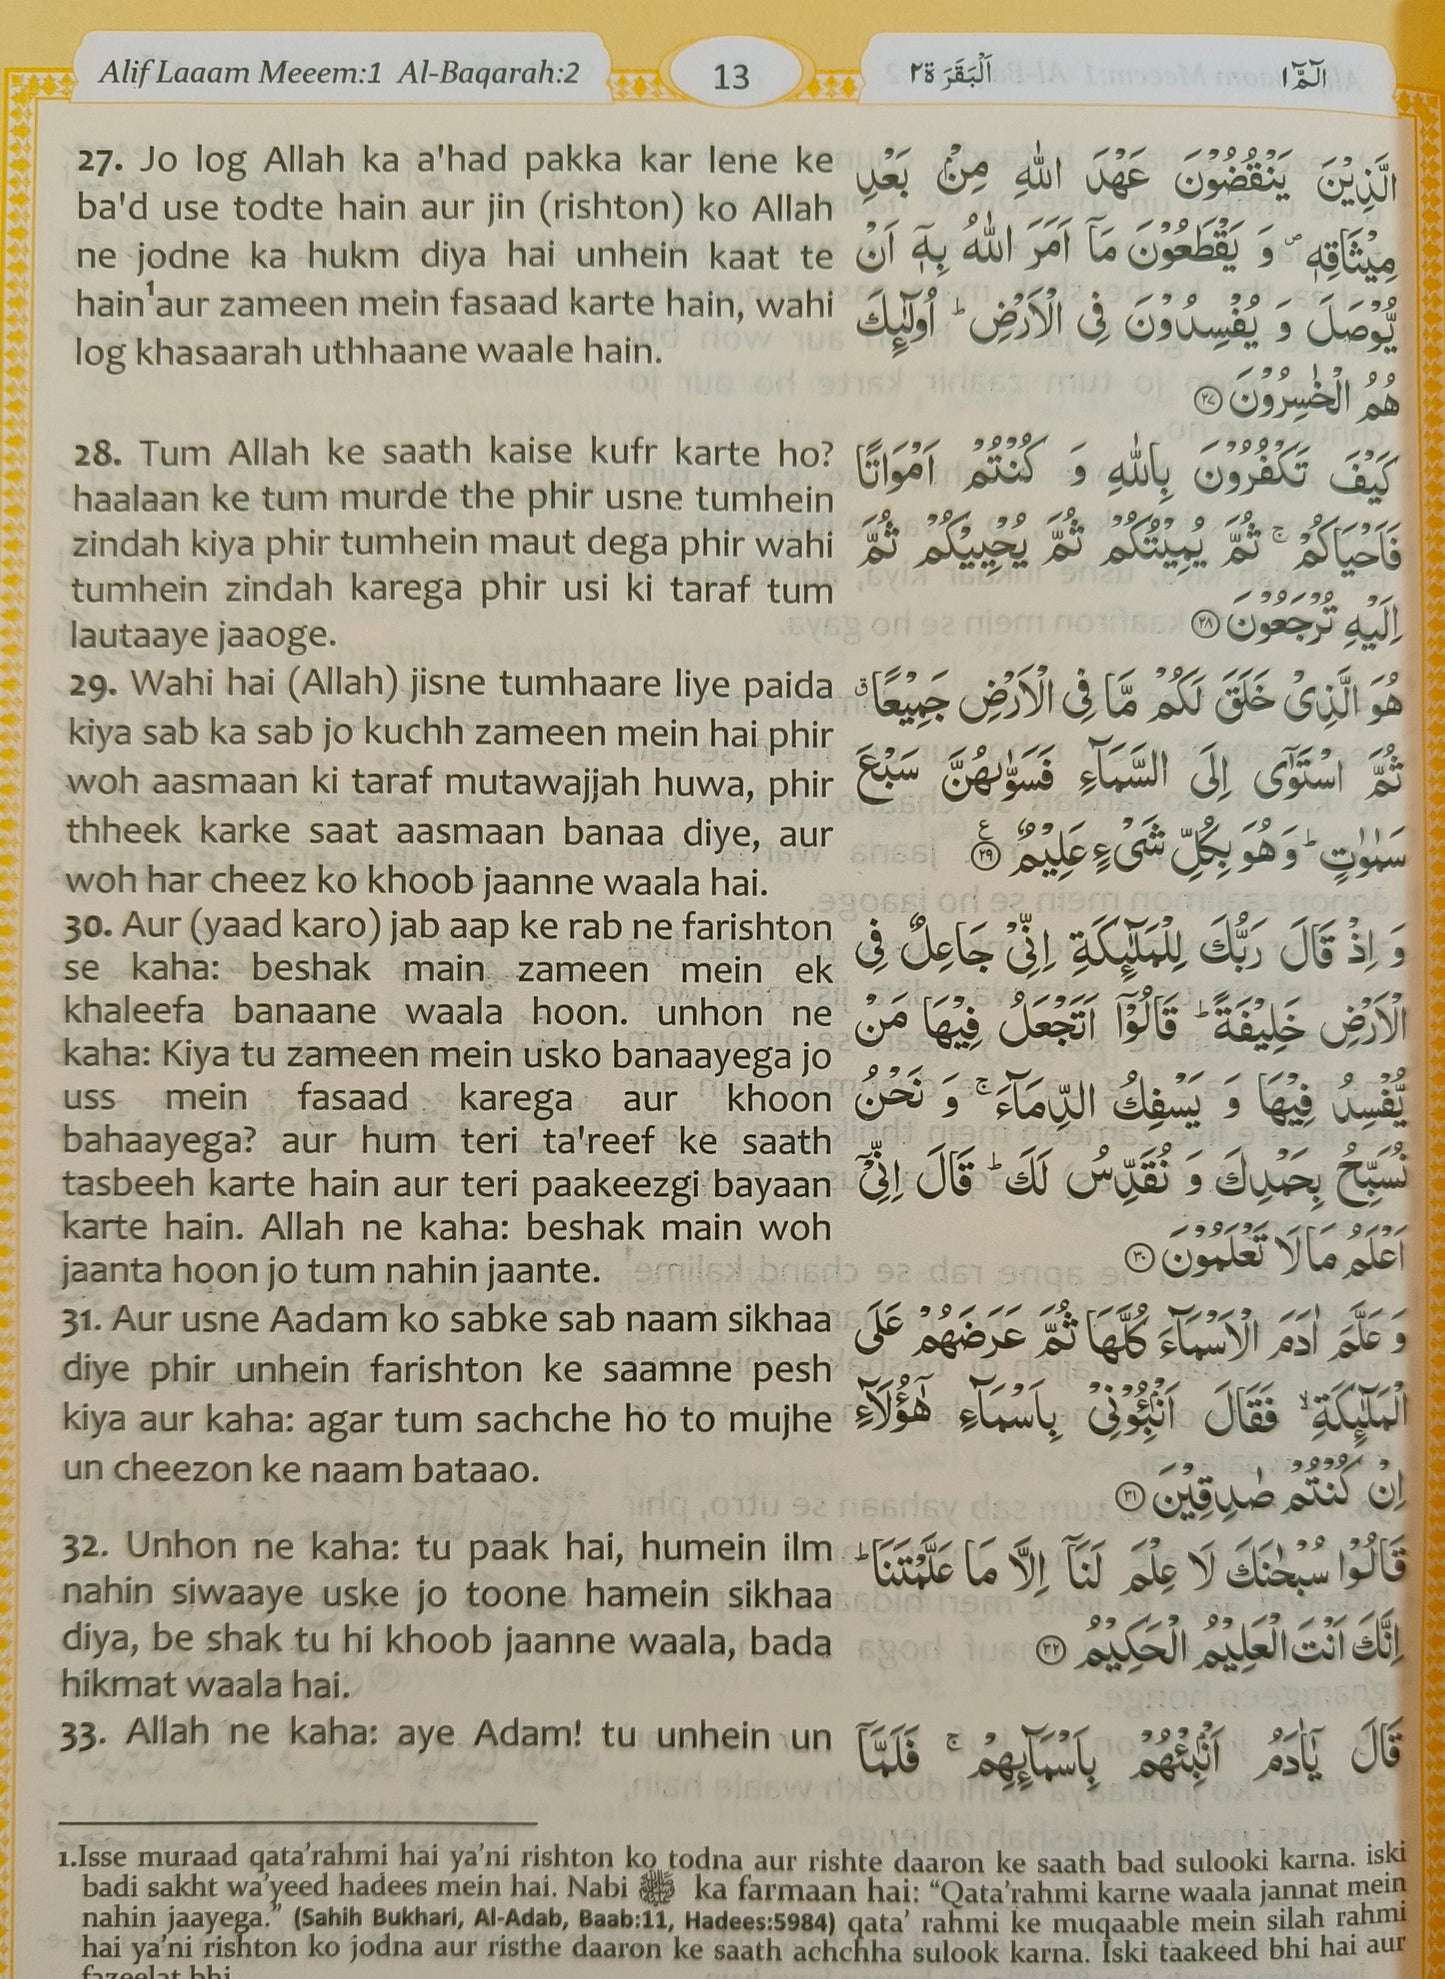 Alif Laaam Meeem:1 Al-Baqarah:2
13
اَلْبَقَرَة٢
الٓمّٓ١
27. Jo log Allah ka a'had pakka kar lene ke
ba'd use todte hain aur jin (rishton) ko Allah
ne jodne ka hukm diya hai unhein kaat te
hain¹aur zameen mein fasaad karte hain, wahi
log khasaarah uthhaane waale hain.
الَّذِيْنَ يَنْقُضُوْنَ عَهْدَ اللّٰهِ مِنْۢ بَعْدِ
مِيْثَاقِهٖ ۪ وَ يَقْطَعُوْنَ مَاۤ اَمَرَ اللّٰهُ بِهٖۤ اَنْ
يُّوْصَلَ وَ يُفْسِدُوْنَ فِى الْاَرْضِ ؕ اُولٰٓئِكَ
هُمُ الْخٰسِرُوْنَ ۝٢٧
28. Tum Allah ke saath kaise kufr karte ho?
haalaan ke tum murde the phir usne tumhein
zindah kiya phir tumhein maut dega phir wahi
tumhein zindah karega phir usi ki taraf tum
lautaaye jaaoge.
كَيْفَ تَكْفُرُوْنَ بِاللّٰهِ وَ كُنْتُمْ اَمْوَاتًا
فَاَحْيَاكُمْ ۚ ثُمَّ يُمِيْتُكُمْ ثُمَّ يُحْيِيْكُمْ ثُمَّ
اِلَيْهِ تُرْجَعُوْنَ ۝٢٨
29. Wahi hai (Allah) jisne tumhaare liye paida
kiya sab ka sab jo kuchh zameen mein hai phir
woh aasmaan ki taraf mutawajjah huwa, phir
thheek karke saat aasmaan banaa diye, aur
woh har cheez ko khoob jaanne waala hai.
هُوَ الَّذِىْ خَلَقَ لَكُمْ مَّا فِى الْاَرْضِ جَمِيْعًا ۗ
ثُمَّ اسْتَوٰۤى اِلَى السَّمَآءِ فَسَوّٰىهُنَّ سَبْعَ
سَمٰوٰتٍ ؕ وَهُوَ بِكُلِّ شَىْءٍ عَلِيْمٌ ۝٢٩ ع
30. Aur (yaad karo) jab aap ke rab ne farishton
se kaha: beshak main zameen mein ek
khaleefa banaane waala hoon. unhon ne
kaha: Kiya tu zameen mein usko banaayega jo
uss mein fasaad karega aur khoon
bahaayega? aur hum teri ta'reef ke saath
tasbeeh karte hain aur teri paakeezgi bayaan
karte hain. Allah ne kaha: beshak main woh
jaanta hoon jo tum nahin jaante.
وَ اِذْ قَالَ رَبُّكَ لِلْمَلٰٓئِكَةِ اِنِّىْ جَاعِلٌ فِى
الْاَرْضِ خَلِيْفَةً ؕ قَالُوْۤا اَتَجْعَلُ فِيْهَا مَنْ
يُّفْسِدُ فِيْهَا وَ يَسْفِكُ الدِّمَآءَ ۚ وَ نَحْنُ
نُسَبِّحُ بِحَمْدِكَ وَ نُقَدِّسُ لَكَ ؕ قَالَ اِنِّىْۤ
اَعْلَمُ مَا لَا تَعْلَمُوْنَ ۝٣٠
31. Aur usne Aadam ko sabke sab naam sikhaa
diye phir unhein farishton ke saamne pesh
kiya aur kaha: agar tum sachche ho to mujhe
un cheezon ke naam bataao.
وَ عَلَّمَ اٰدَمَ الْاَسْمَآءَ كُلَّهَا ثُمَّ عَرَضَهُمْ عَلَى
الْمَلٰٓئِكَةِ ۙ فَقَالَ اَنْۢبِـُٔوْنِىْ بِاَسْمَآءِ هٰۤؤُلَآءِ
اِنْ كُنْتُمْ صٰدِقِيْنَ ۝٣١
32. Unhon ne kaha: tu paak hai, humein ilm
nahin siwaaye uske jo toone hamein sikhaa
diya, be shak tu hi khoob jaanne waala, bada
hikmat waala hai.
قَالُوْا سُبْحٰنَكَ لَا عِلْمَ لَنَاۤ اِلَّا مَا عَلَّمْتَنَا ؕ
اِنَّكَ اَنْتَ الْعَلِيْمُ الْحَكِيْمُ ۝٣٢
33. Allah ne kaha: aye Adam! tu unhein un
قَالَ يٰۤاٰدَمُ اَنْۢبِئْهُمْ بِاَسْمَآئِهِمْ ۚ فَلَمَّاۤ
1.Isse muraad qata'rahmi hai ya'ni rishton ko todna aur rishte daaron ke saath bad sulooki karna. iski
badi sakht wa'yeed hadees mein hai. Nabi ﷺ ka farmaan hai: “Qata'rahmi karne waala jannat mein
nahin jaayega.” (Sahih Bukhari, Al-Adab, Baab:11, Hadees:5984) qata' rahmi ke muqaable mein silah rahmi
hai ya'ni rishton ko jodna aur risthe daaron ke saath achchha sulook karna. Iski taakeed bhi hai aur
fazeelat bhi.